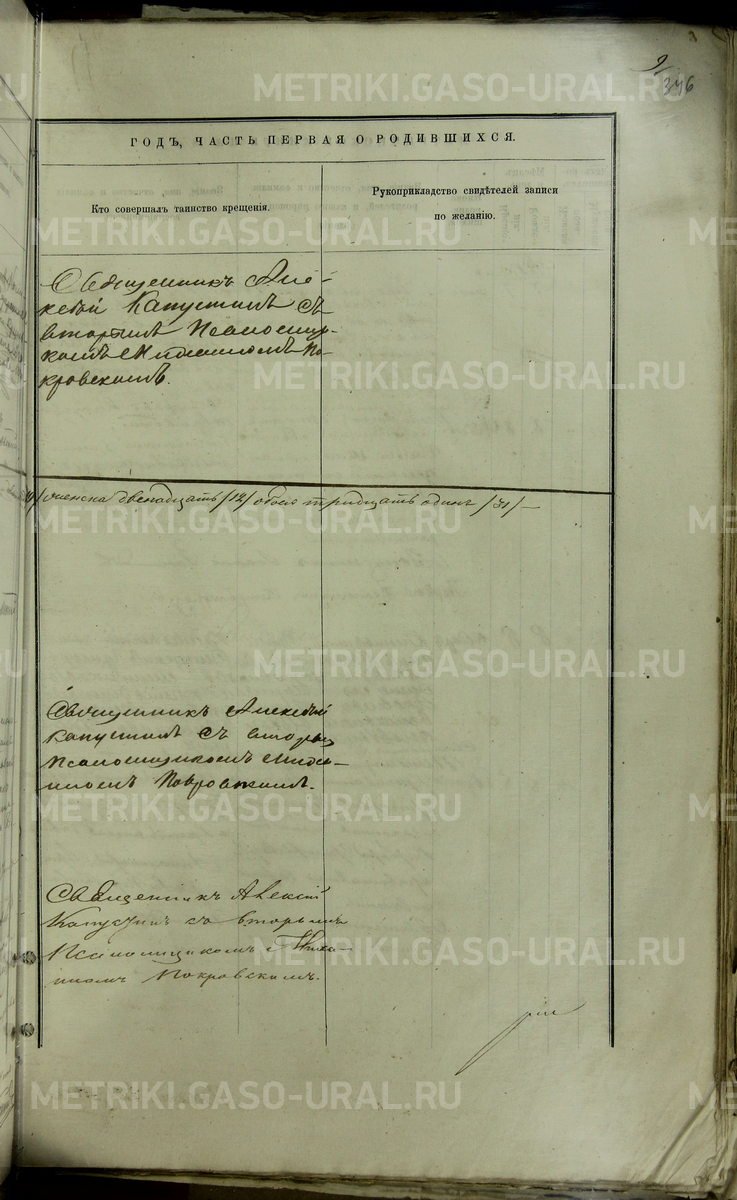 9
346
ГОДЪ, ЧАСТЬ ПЕРВАЯ О РОДИВШИХСЯ.
Кто совершалъ таинство крещенія.
Рукоприкладство свидѣтелей записи
по желанію.
Священникъ Але-
ксѣй Капустинъ съ
вторымъ Псаломщи-
комъ Михаиломъ По-
кровскимъ.
женска двенадцать /12/ обоего тридцать одинъ /31/ —
Священникъ Алексѣй
Капустинъ съ вторымъ
Псаломщикомъ Михаи-
ломъ Покровскимъ.
Священникъ Алексій
Капустинъ со вторымъ
Псаломщикомъ Михаи-
ломъ Покровскимъ.
METRIKI.GASO-URAL.RU